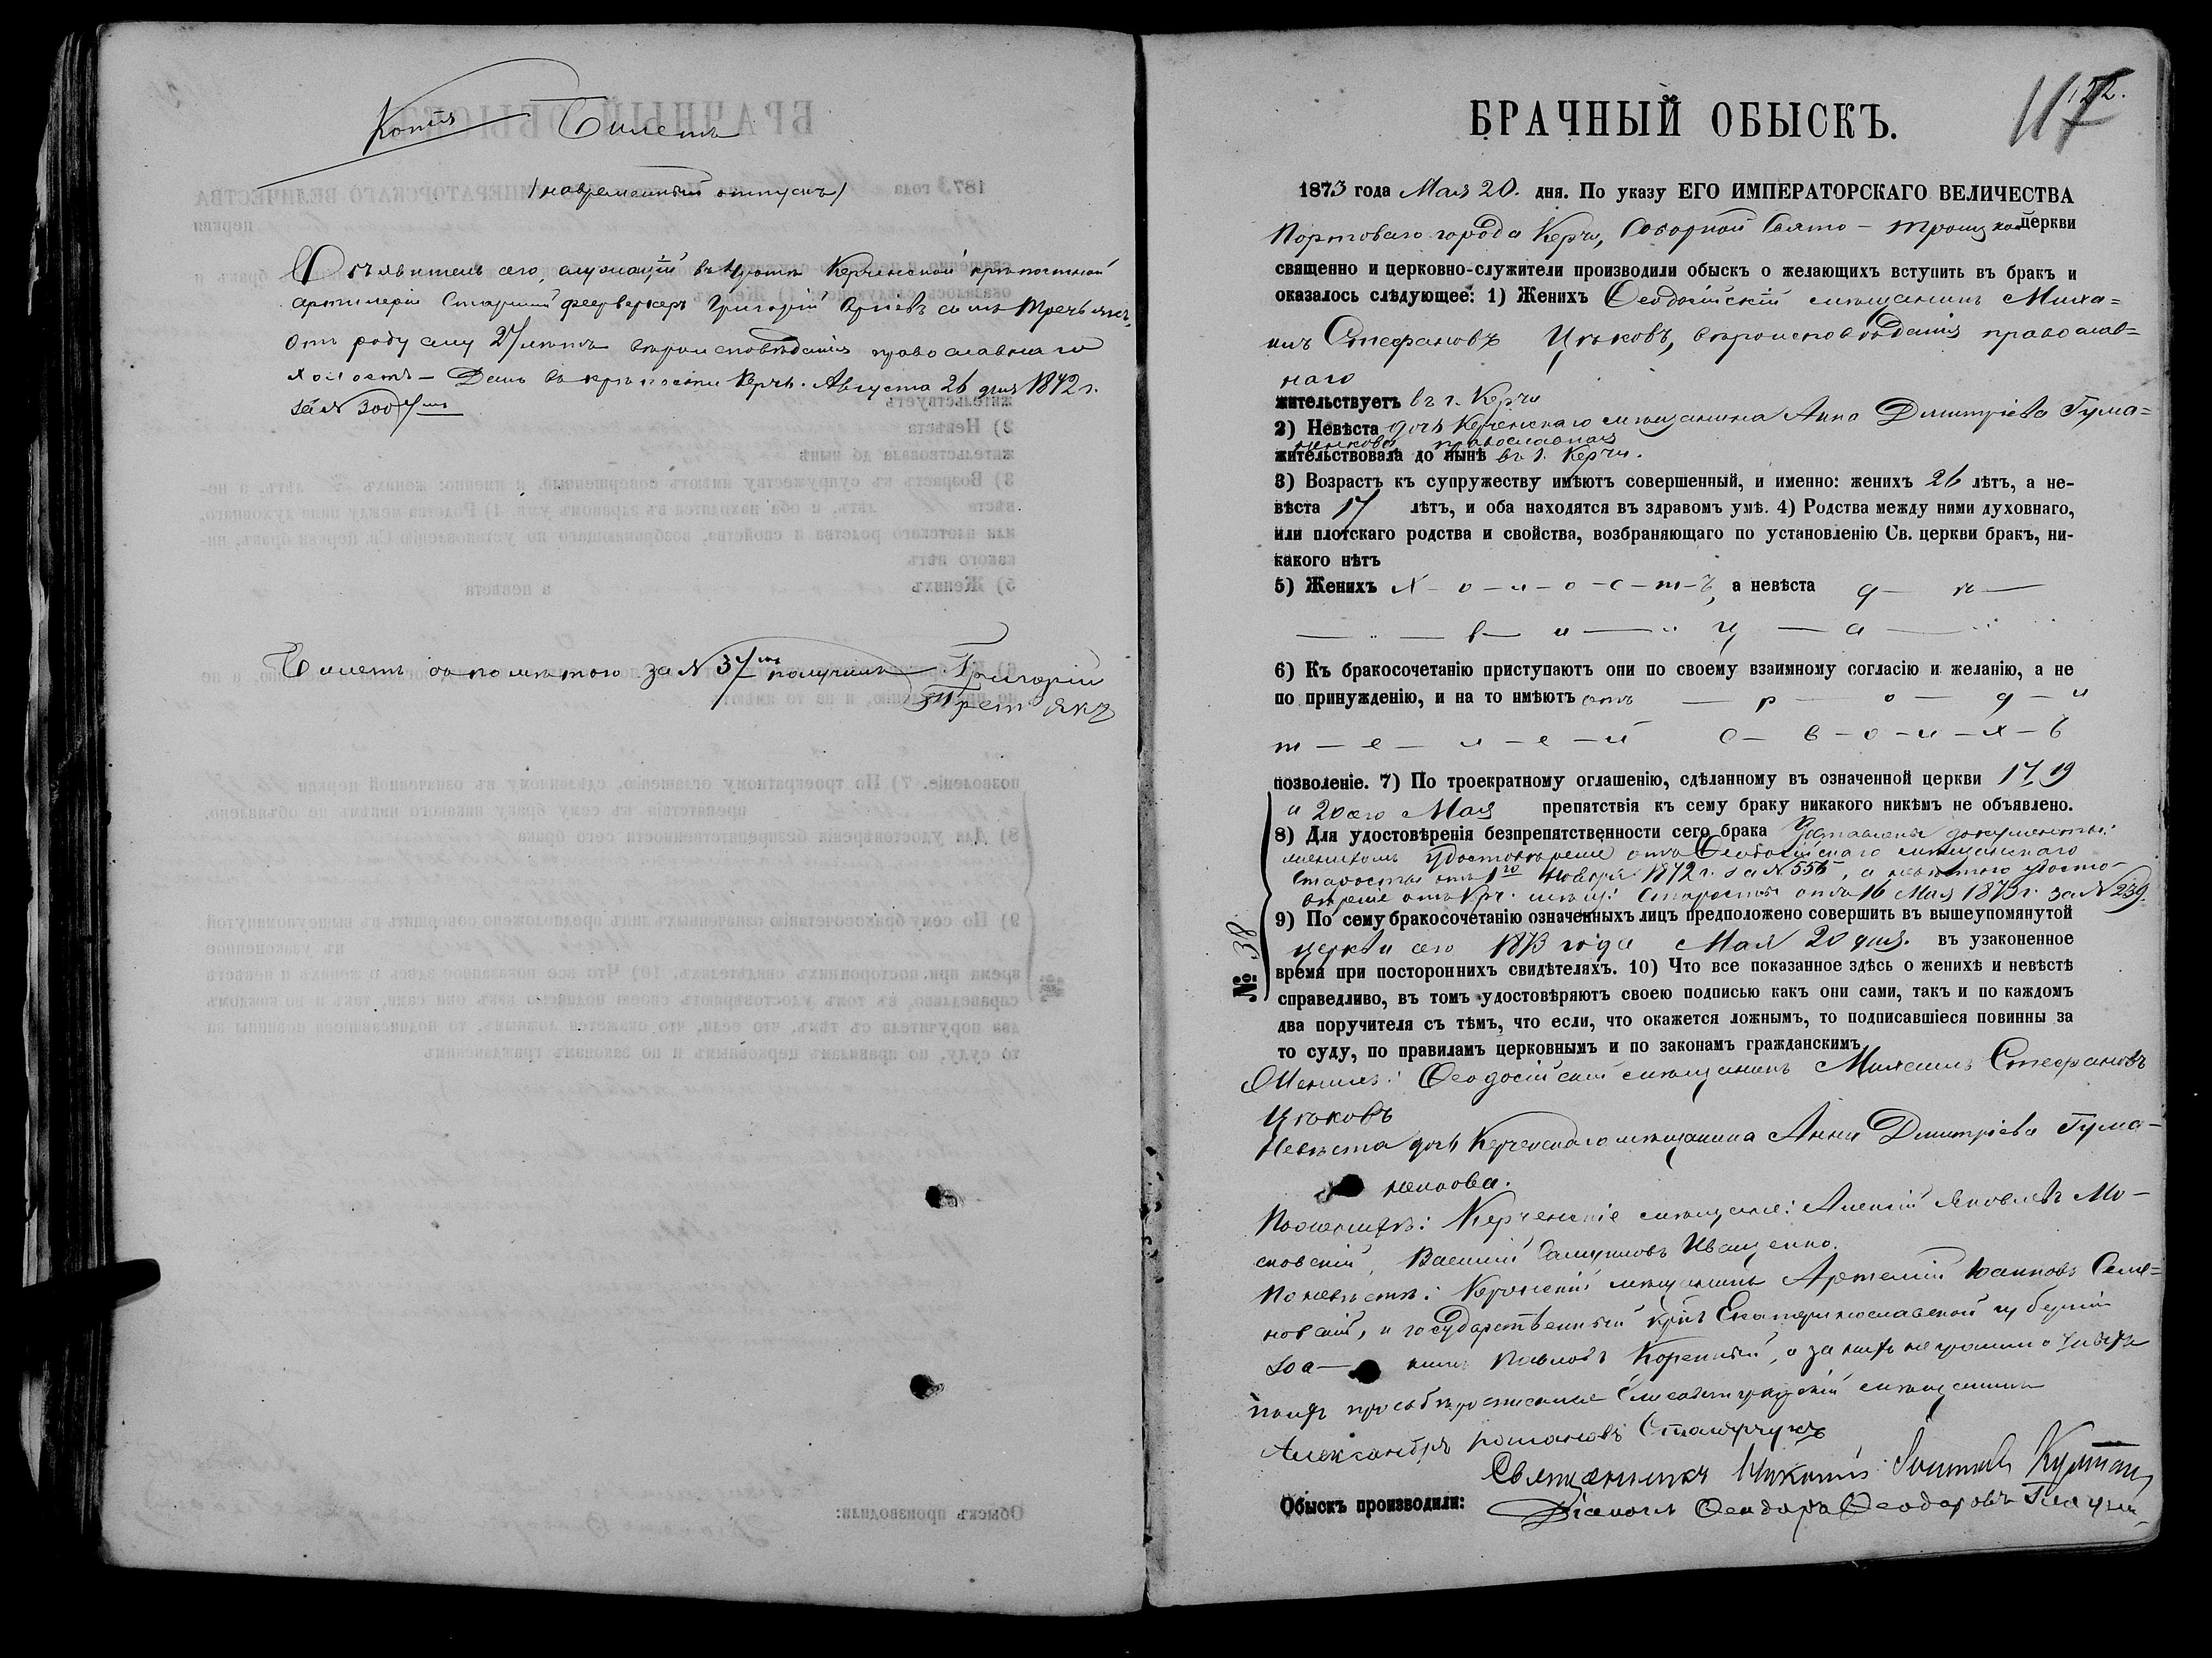 Копія Билетъ
/на временный отпускъ/
Объявитель сего, служащій въ Керченской крѣпостной
артилеріи Старшій фейерверкеръ Григорій сынъ Третьякъ,
отъ роду ему 27 лѣтъ вѣроисповѣданія православнаго
холостъ — Данъ въ крѣпости Керчь. Августа 26 дня 1872 г.
за № 3007мъ
Билетъ за № 37мъ получилъ Григорій
Третьякъ
117
122.
БРАЧНЫЙ ОБЫСКЪ.
1873 года Мая 20. дня. По указу ЕГО ИМПЕРАТОРСКАГО ВЕЛИЧЕСТВА
Портоваго города Керчи, Соборной Свято-Троицкой церкви
священно и церковно-служители производили обыскъ о желающихъ вступить въ бракъ и
оказалось слѣдующее: 1) Женихъ Ѳеодосійскій мѣщанинъ Миха=
илъ Стефановъ Цѣковъ, вѣроисповѣданія православ=
наго
жительствуетъ въ г. Керчи
2) Невѣста дочь Керченскаго мѣщанина Анна Димитріева Гума=
ненкова, православная
жительствовала до нынѣ въ г. Керчи.
3) Возрастъ къ супружеству имѣютъ совершенный, и именно: женихъ 26 лѣтъ, а не-
вѣста 17 лѣтъ, и оба находятся въ здравомъ умѣ. 4) Родства между ними духовнаго,
или плотскаго родства и свойства, возбраняющаго по установленію Св. церкви бракъ, ни-
какого нѣтъ
5) Женихъ х-о-л-о-с-т-ъ, а невѣста д — ѣ —
— в — и — ц — а —
6) Къ бракосочетанію приступаютъ они по своему взаимному согласію и желанію, а не
по принужденію, и на то имѣютъ отъ — р — о — д — и
т — е — л — е — й с — в — о — и — х — ъ
позволеніе. 7) По троекратному оглашенію, сдѣланному въ означенной церкви 17, 19
и 20 его Мая препятствія къ сему браку никакого никѣмъ не объявлено.
8) Для удостовѣренія безпрепятственности сего брака доставлены документы:
женихомъ удостовѣреніе отъ Ѳеодосійскаго мѣщанскаго
Старосты отъ 1го Ноября 1872 г. за № 556, а невѣстою удосто-
вѣреніе отъ Кер. мѣщ. Старосты отъ 16 Мая 1873 г. за № 239.
9) По сему бракосочетанію означенныхъ лицъ предположено совершить въ вышеупомянутой
церкви сего 1873 года Мая 20 дня. въ узаконенное
№ 38
время при постороннихъ свидѣтеляхъ. 10) Что все показанное здѣсь о женихѣ и невѣстѣ
справедливо, въ томъ удостовѣряютъ своею подписью какъ они сами, такъ и по каждомъ
два поручителя съ тѣмъ, что если, что окажется ложнымъ, то подписавшіеся повинны за
то суду, по правиламъ церковнымъ и по законамъ гражданскимъ
Женихъ: Ѳеодосійскій мѣщанинъ Михаилъ Стефановъ
Цѣковъ
Невѣста дочь Керченскаго мѣщанина Анна Димитріева Гума-
ненкова.
По женихѣ: Керченскіе мѣщане: Алексій Яковлевъ Мо-
сковскій, Василій Иващенко.
По невѣстѣ: Керченскій мѣщанинъ Артемій Іоанновъ Семе=
новскій, и государственный кр. Екатеринославской губерніи
Іоа- ннъ Павловъ Коренный, а за нихъ неграмотныхъ
по ихъ прозьбѣ росписался Елисаветградскій мѣщанинъ
Александръ Романовъ
Обыскъ производили: Священникъ
Діаконъ Ѳеодоръ Ѳеодоровъ